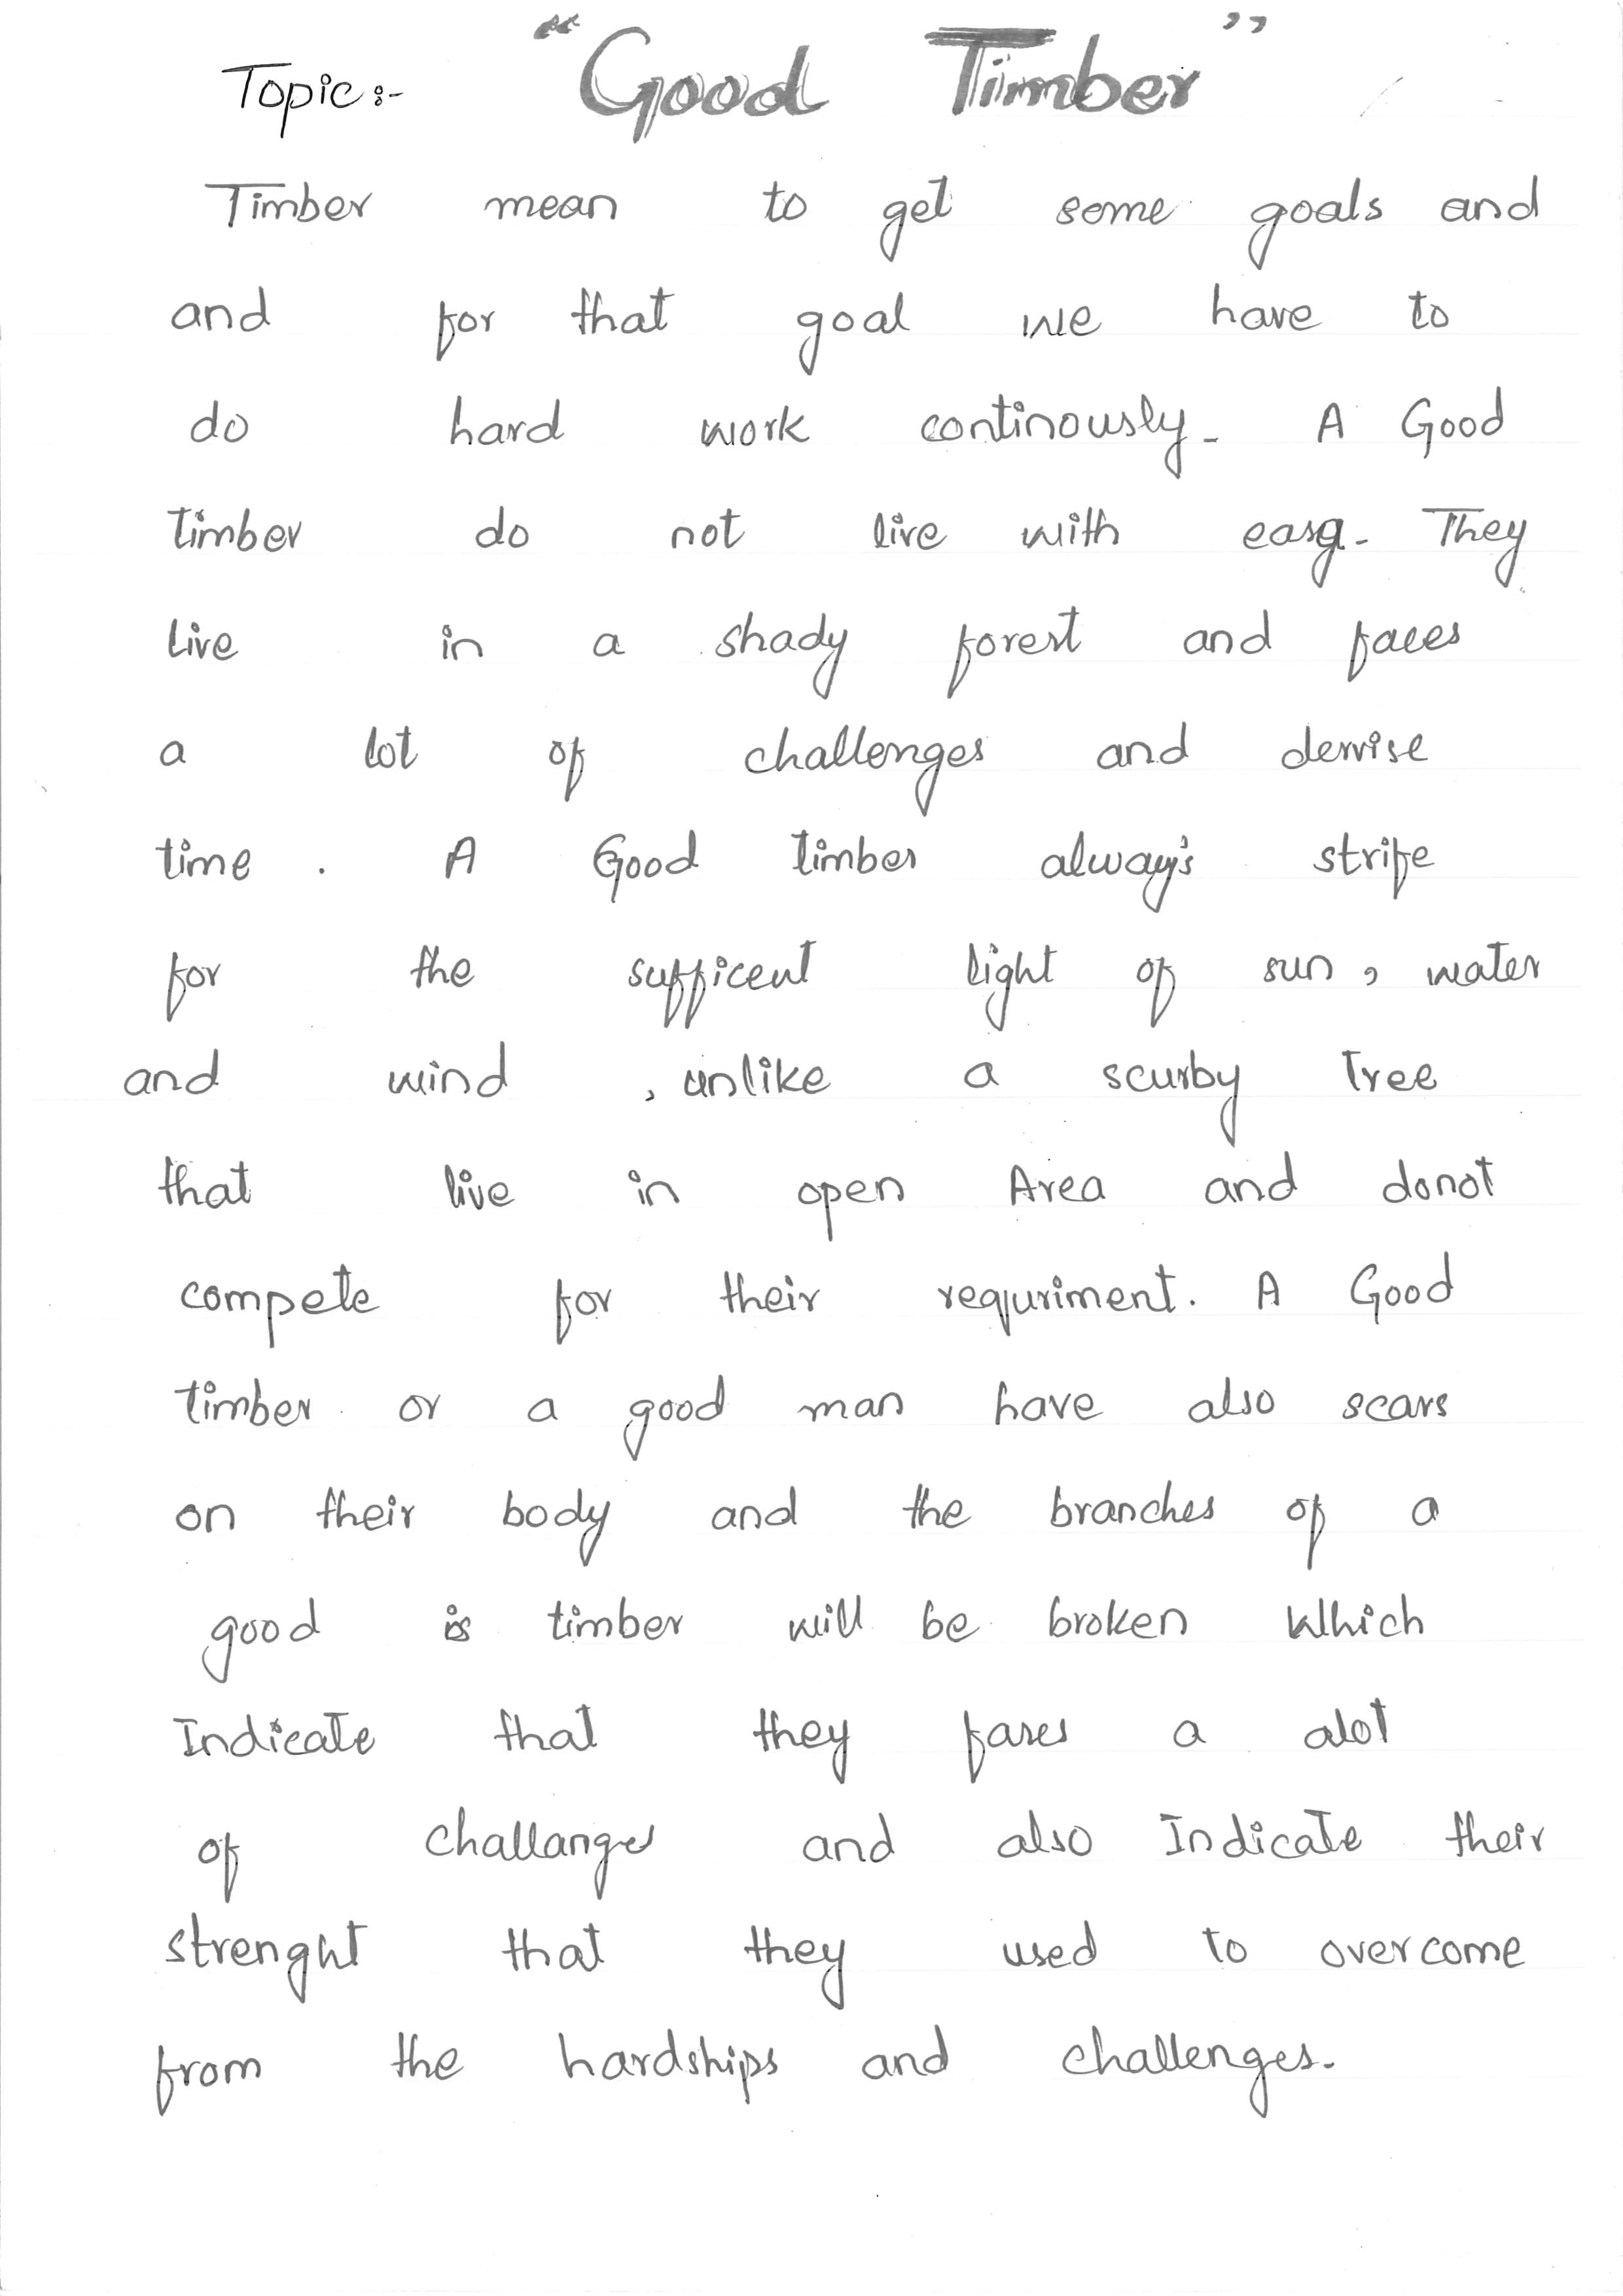 Topic:- "Good Timber"
Timber mean to get some goals and
and for that goal we have to
do hard work continously. A Good
timber do not live with easy. They
live in a shady forest and faces
a lot of challenges and demise
time . A Good timber alway's strife
for the sufficent light of sun, water
and wind , unlike a scurby tree
that live in open Area and donot
compete for their requriment. A Good
timber or a good man have also scars
on their body and the branches of a
good is timber will be broken Which
Indicate that they fases a alot
of challanges and also Indicate their
strenght that they used to overcome
from the hardships and challenges.